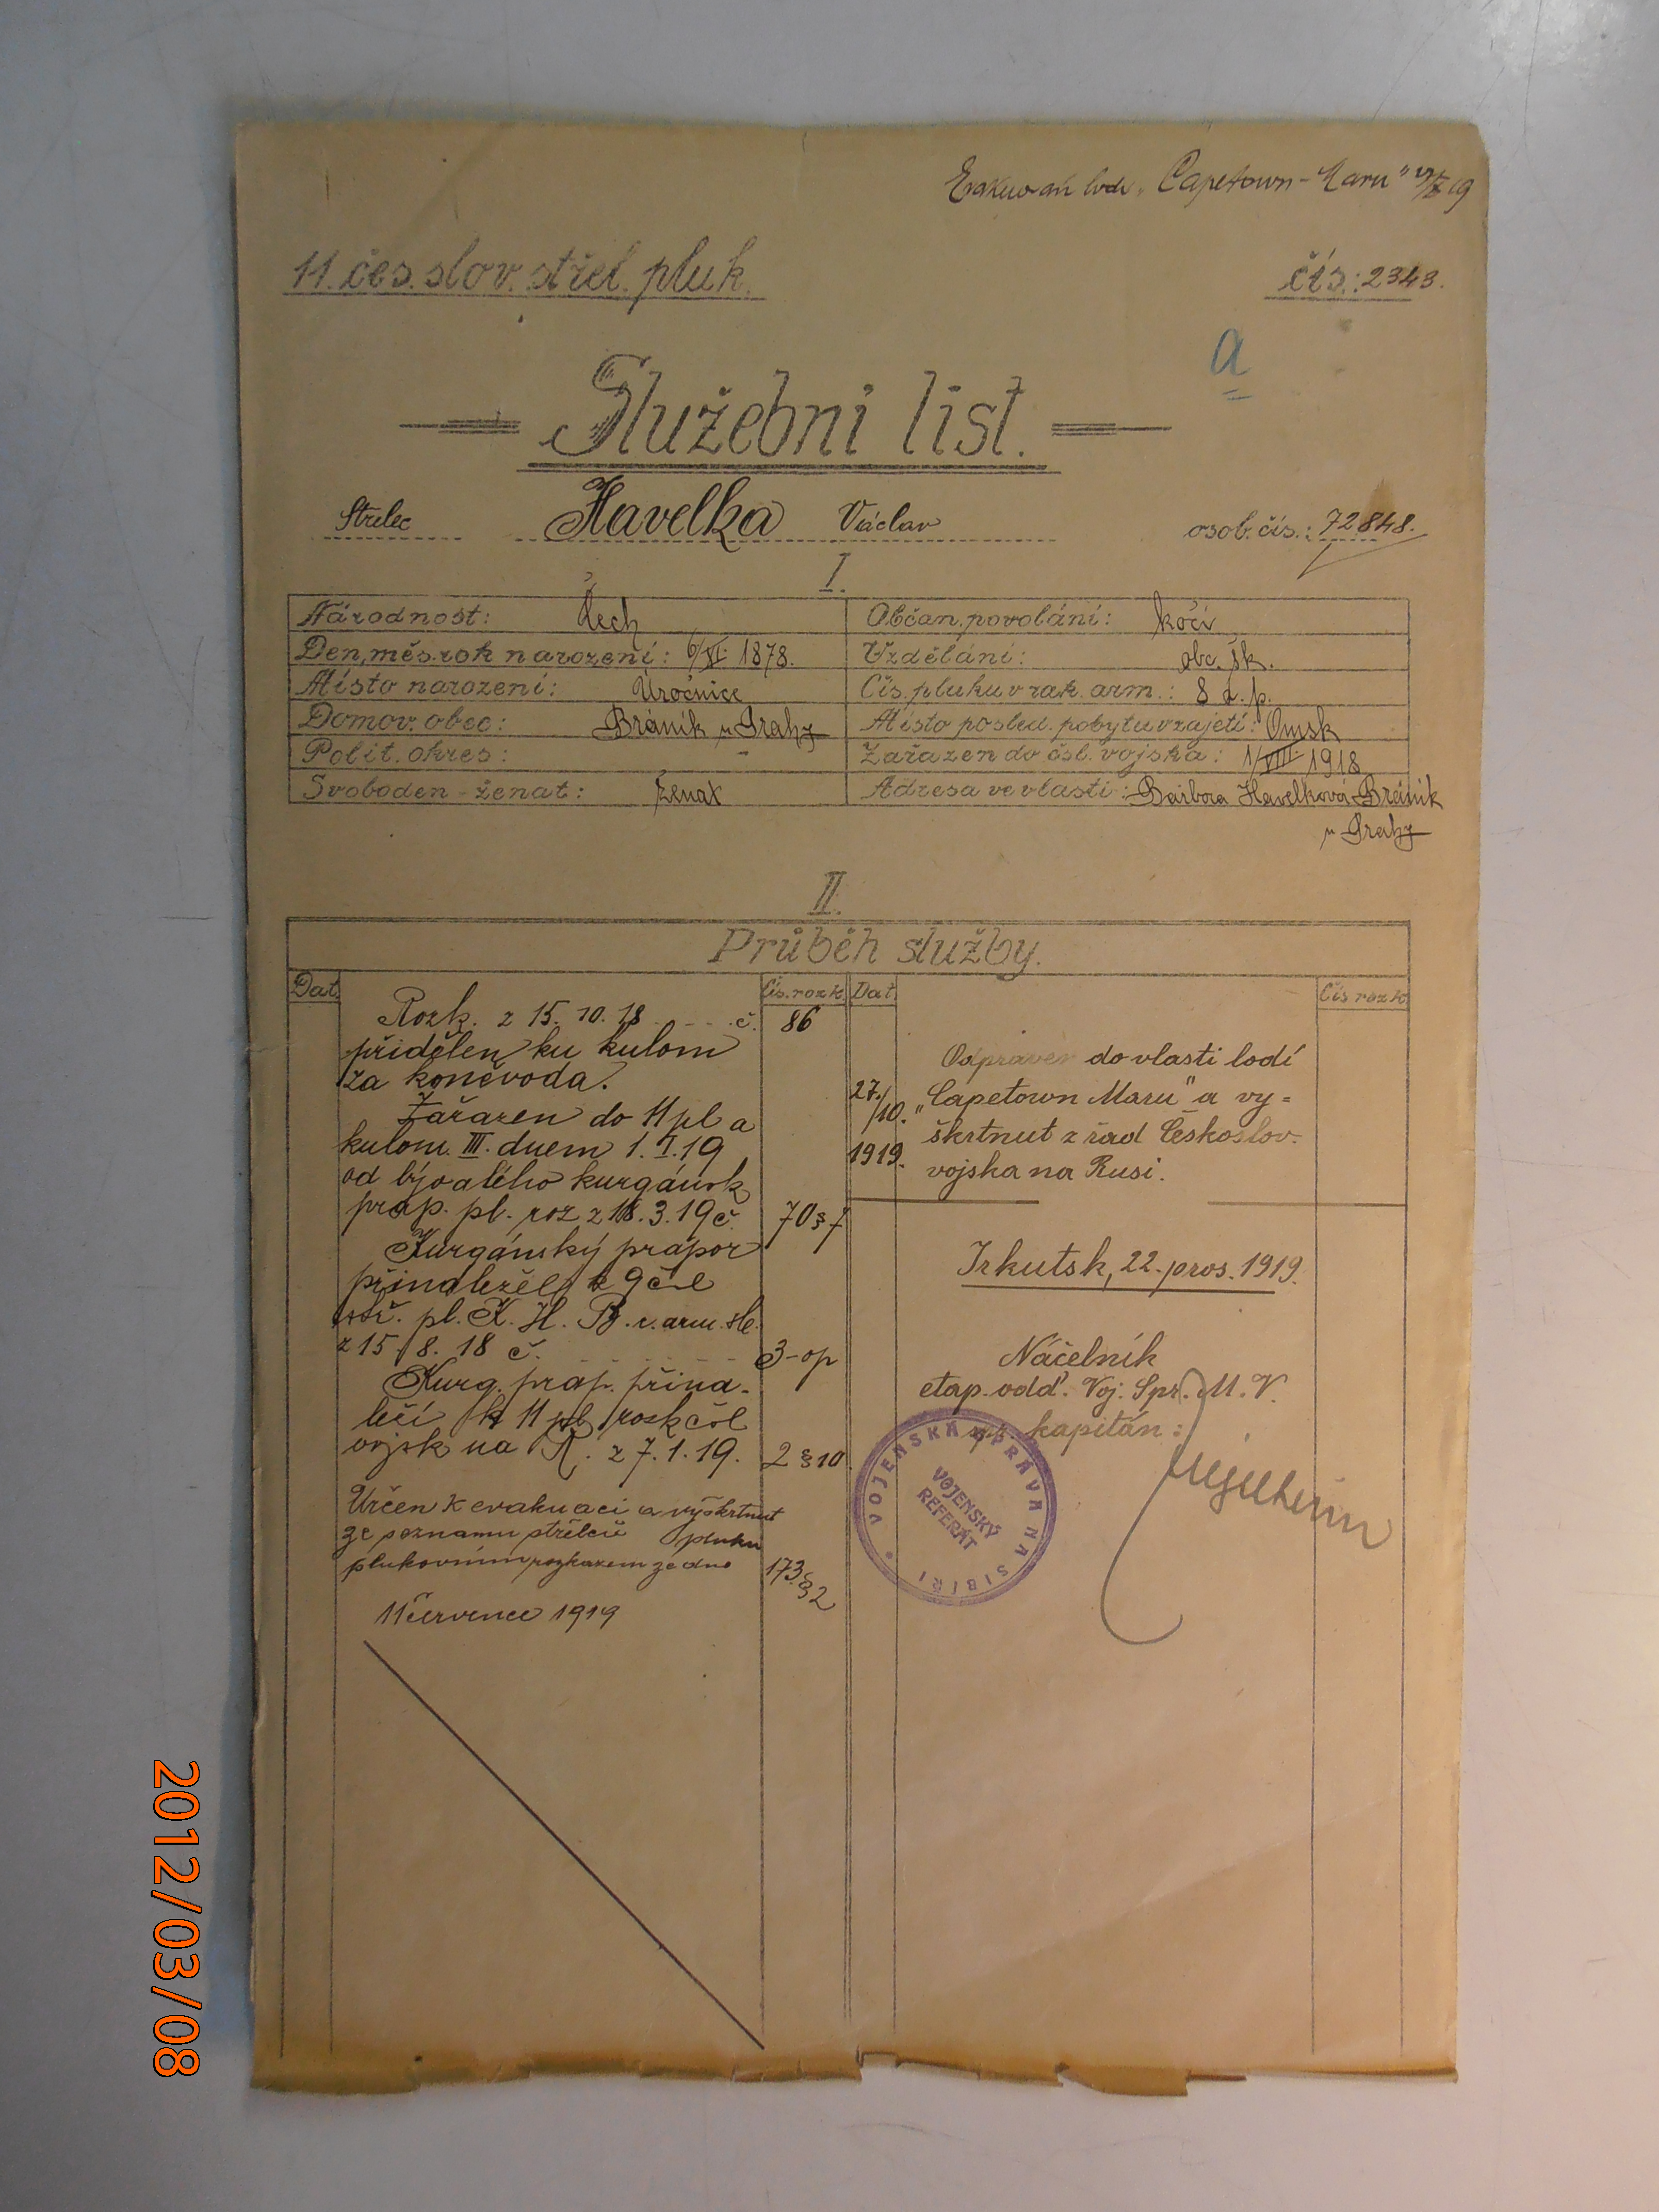 Evakuován lodí „Capetown-Maru"
11. čes. slov. střel. pluk.
čís.: 2343.
a
Služební list.
Střelec Havelka Václav osob. čís.: 72848.
I.
Národnost: Čech
Občan. povolání: kočí
Den, měs. rok narození: 6/VI. 1878.
Vzdělání: obc. šk.
Místo narození: Úročnice
Čís. pluku v rak. arm.: 8 z. p.
Domov. obec: Bráník u Prahy
Místo posled. pobytu v zajetí: Omsk
Polit. okres: -
Zařazen do čsl. vojska: 1/VIII 1918
Svoboden - ženat: ženat
Adresa ve vlasti: Barbora Havelková Bráník
u Prahy
II.
Průběh služby.
Dat. Čís. rozk. Dat. Čís rozk.
Rozk. z 15. 10. 18 č. 86
přidělen ku kulom
za koněvoda.
Zařazen do 11 pl a
kulom. III. dnem 1. I. 19
od bývalého kurgánsk
prap. pl. roz z 18. 3. 19 č. 70 § 7
Kurgánský prapor
přináležel k 9 čsl
stř. pl. K. H. B. r. arm. sle.
z 15/8. 18 č. 3-op
Kurg. prap. přiná-
leží k 11 pl rozk čsl
vojsk na R. z 7. 1. 19. 2 § 10
Určen k evakuaci a vyškrtnut
ze seznamu střelců pluku
plukovním rozkazem ze dne 173 § 2
11 července 1919
27./10. 1919.
Odpraven do vlasti lodí
„Capetown Maru" a vy-
škrtnut z řad Českoslov.
vojska na Rusi.
Irkutsk, 22. pros. 1919.
Náčelník
etap. odd. Voj. Spr. M. V.
kapitán:
VOJENSKÁ SPRÁVA NA SIBIŘI
VOJENSKÝ
REFERÁT
2012/03/08